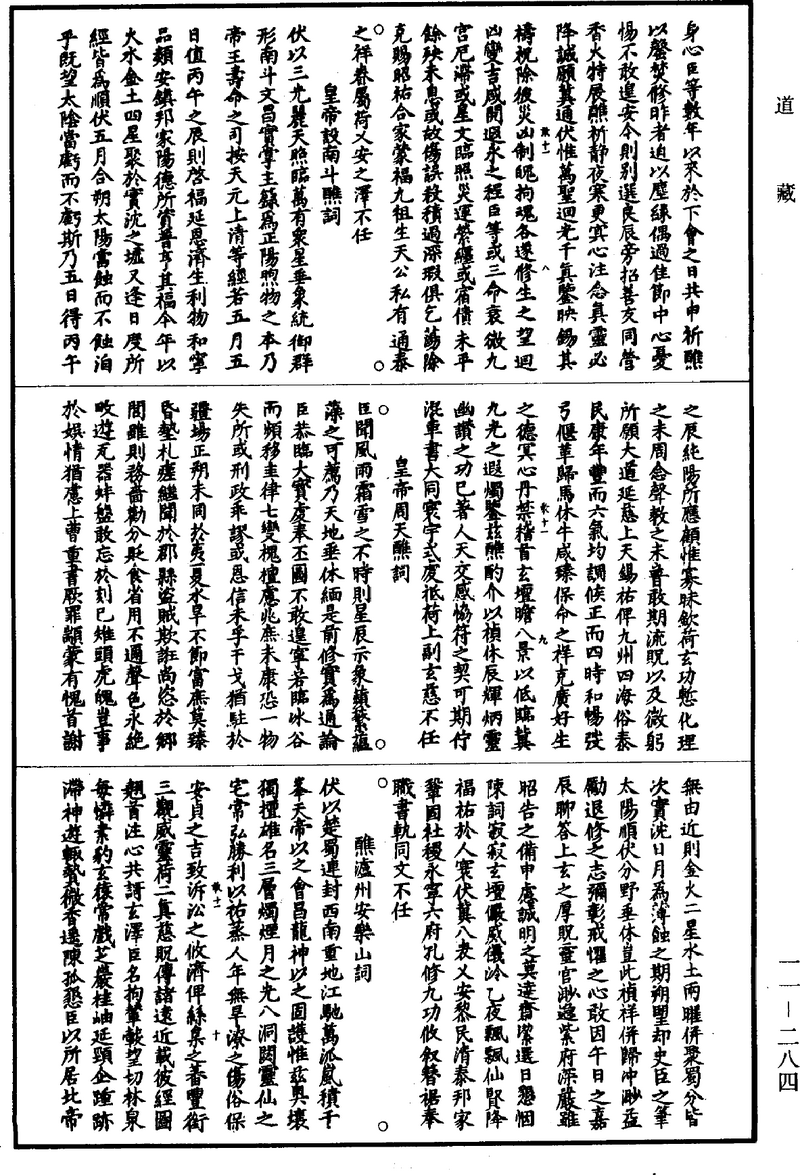 道藏
身心臣等數年以來於下會之日共申祈醮
以罄焚修昨者迫以塵緣偶過佳節中心憂
惕不敢遑安今則別選良辰旁招善友同營
香火特展醮祈靜夜寒更冥心注念真靈必
降誠願冀通伏惟萬聖迴光千真鑒映錫其
禱祝除彼災凶制魄拘魂各遂修生之望迴
凶變吉咸開退永之程臣等或三命衰微九
宮厄滯或星文臨照災運縈纏或宿債未平
餘殃未息或故傷誤殺積過深瑕俱乞蕩除
克賜昭祐合家蒙福九祖生天公私有通泰
之祥眷屬荷乂安之澤不任
皇帝設南斗醮詞
伏以三光麗天照臨萬有眾星垂象統御群
形南斗文昌實掌主籙為正陽煦物之本乃
帝王壽命之司按天元上清等經若五月五
日值丙午之辰則啓福延恩濟生利物和寧
品類安鎮邦家陽德所資普亨其福今年以
火水金土四星聚於實沈之墟又逢日度所
經皆為順伏五月合朔太陽當蝕而不蝕洎
乎既望太陰當虧而不虧斯乃五日得丙午
之辰純陽所應顧惟寡昧欽荷玄功慙化理
之未周念聲教之未普敢期流貺以及微躬
所願大道延慈上天錫祐俾九州四海俗泰
民康年豐而六氣均調候正而四時和暢弢
弓偃革歸馬休牛咸臻保命之祥克廣好生
之德冥心丹禁稽首玄壇瞻八景以低臨冀
九光之遐燭鑒茲醮酌介以禎休辰輝炳靈
幽讚之功已著人天交感協符之契可期佇
混車書大同寰宇式虔祗荷上副玄慈不任
皇帝周天醮詞
臣聞風雨霜雪之不時則星辰示象蘋蘩蘊
藻之可薦乃天地垂休緬是前修實為通論
臣恭臨大寶虔奉丕圖不敢遑寧若臨冰谷
而頻移圭律七變槐檀慮兆庶未康恐一物
失所或刑政乖謬或恩信未孚干戈猶駐於
疆場正朔未同於夷夏水旱不節富庶莫臻
昏墊札瘥繼聞於郡縣盜賊欺誑尚恣於鄉
閭雖則務嗇勸分貶食省用不邇聲色永絕
畋遊瓦器蚌盤敢忘於刻已雉頭虎魄豈事
於娛情猶慮上曹重書厥罪顓蒙有愧首謝
無由近則金火二星水土兩曜併聚蜀分皆
次實沈日月為薄蝕之期朔朢却史臣之筆
太陽順伏分野垂休豈此禎祥併歸沖眇益
勵退修之志彌彰戒懼之心敢因午日之嘉
辰聊答上玄之厚貺靈官渺邈紫府深嚴雖
昭告之備申慮誠明之莫達齋潔選日懇悃
陳詞寂寂玄壇儼威儀泠乙夜飄飄仙賢降
福祐於人寰伏冀八表乂安黎民清泰邦家
鞏固社稷永寧六府孔修九功攸敘簪裾奉
職書軌同文不任
醮瀘州安樂山詞
伏以楚蜀連封西南重地江馳萬派嵐積千
峯天帝以之會昌龍神以之固護惟茲奧壤
獨擅雄名三層燭煙月之光八洞閟靈仙之
宅常弘勝利以祐蒸人年無旱潦之傷俗保
安貞之吉致泝沿之攸濟俾絲枲之蕃豐銜
三觀威靈荷二真慈貺傳諸遠近載彼經圖
翹首注心共諝玄澤臣名拘輦轂望切林泉
每憐素豹玄猿常戲芝巖桂岫延頸企踵跡
滯神遊輙贄微香遥陳孤懇臣以所居比帝
一一—二八四